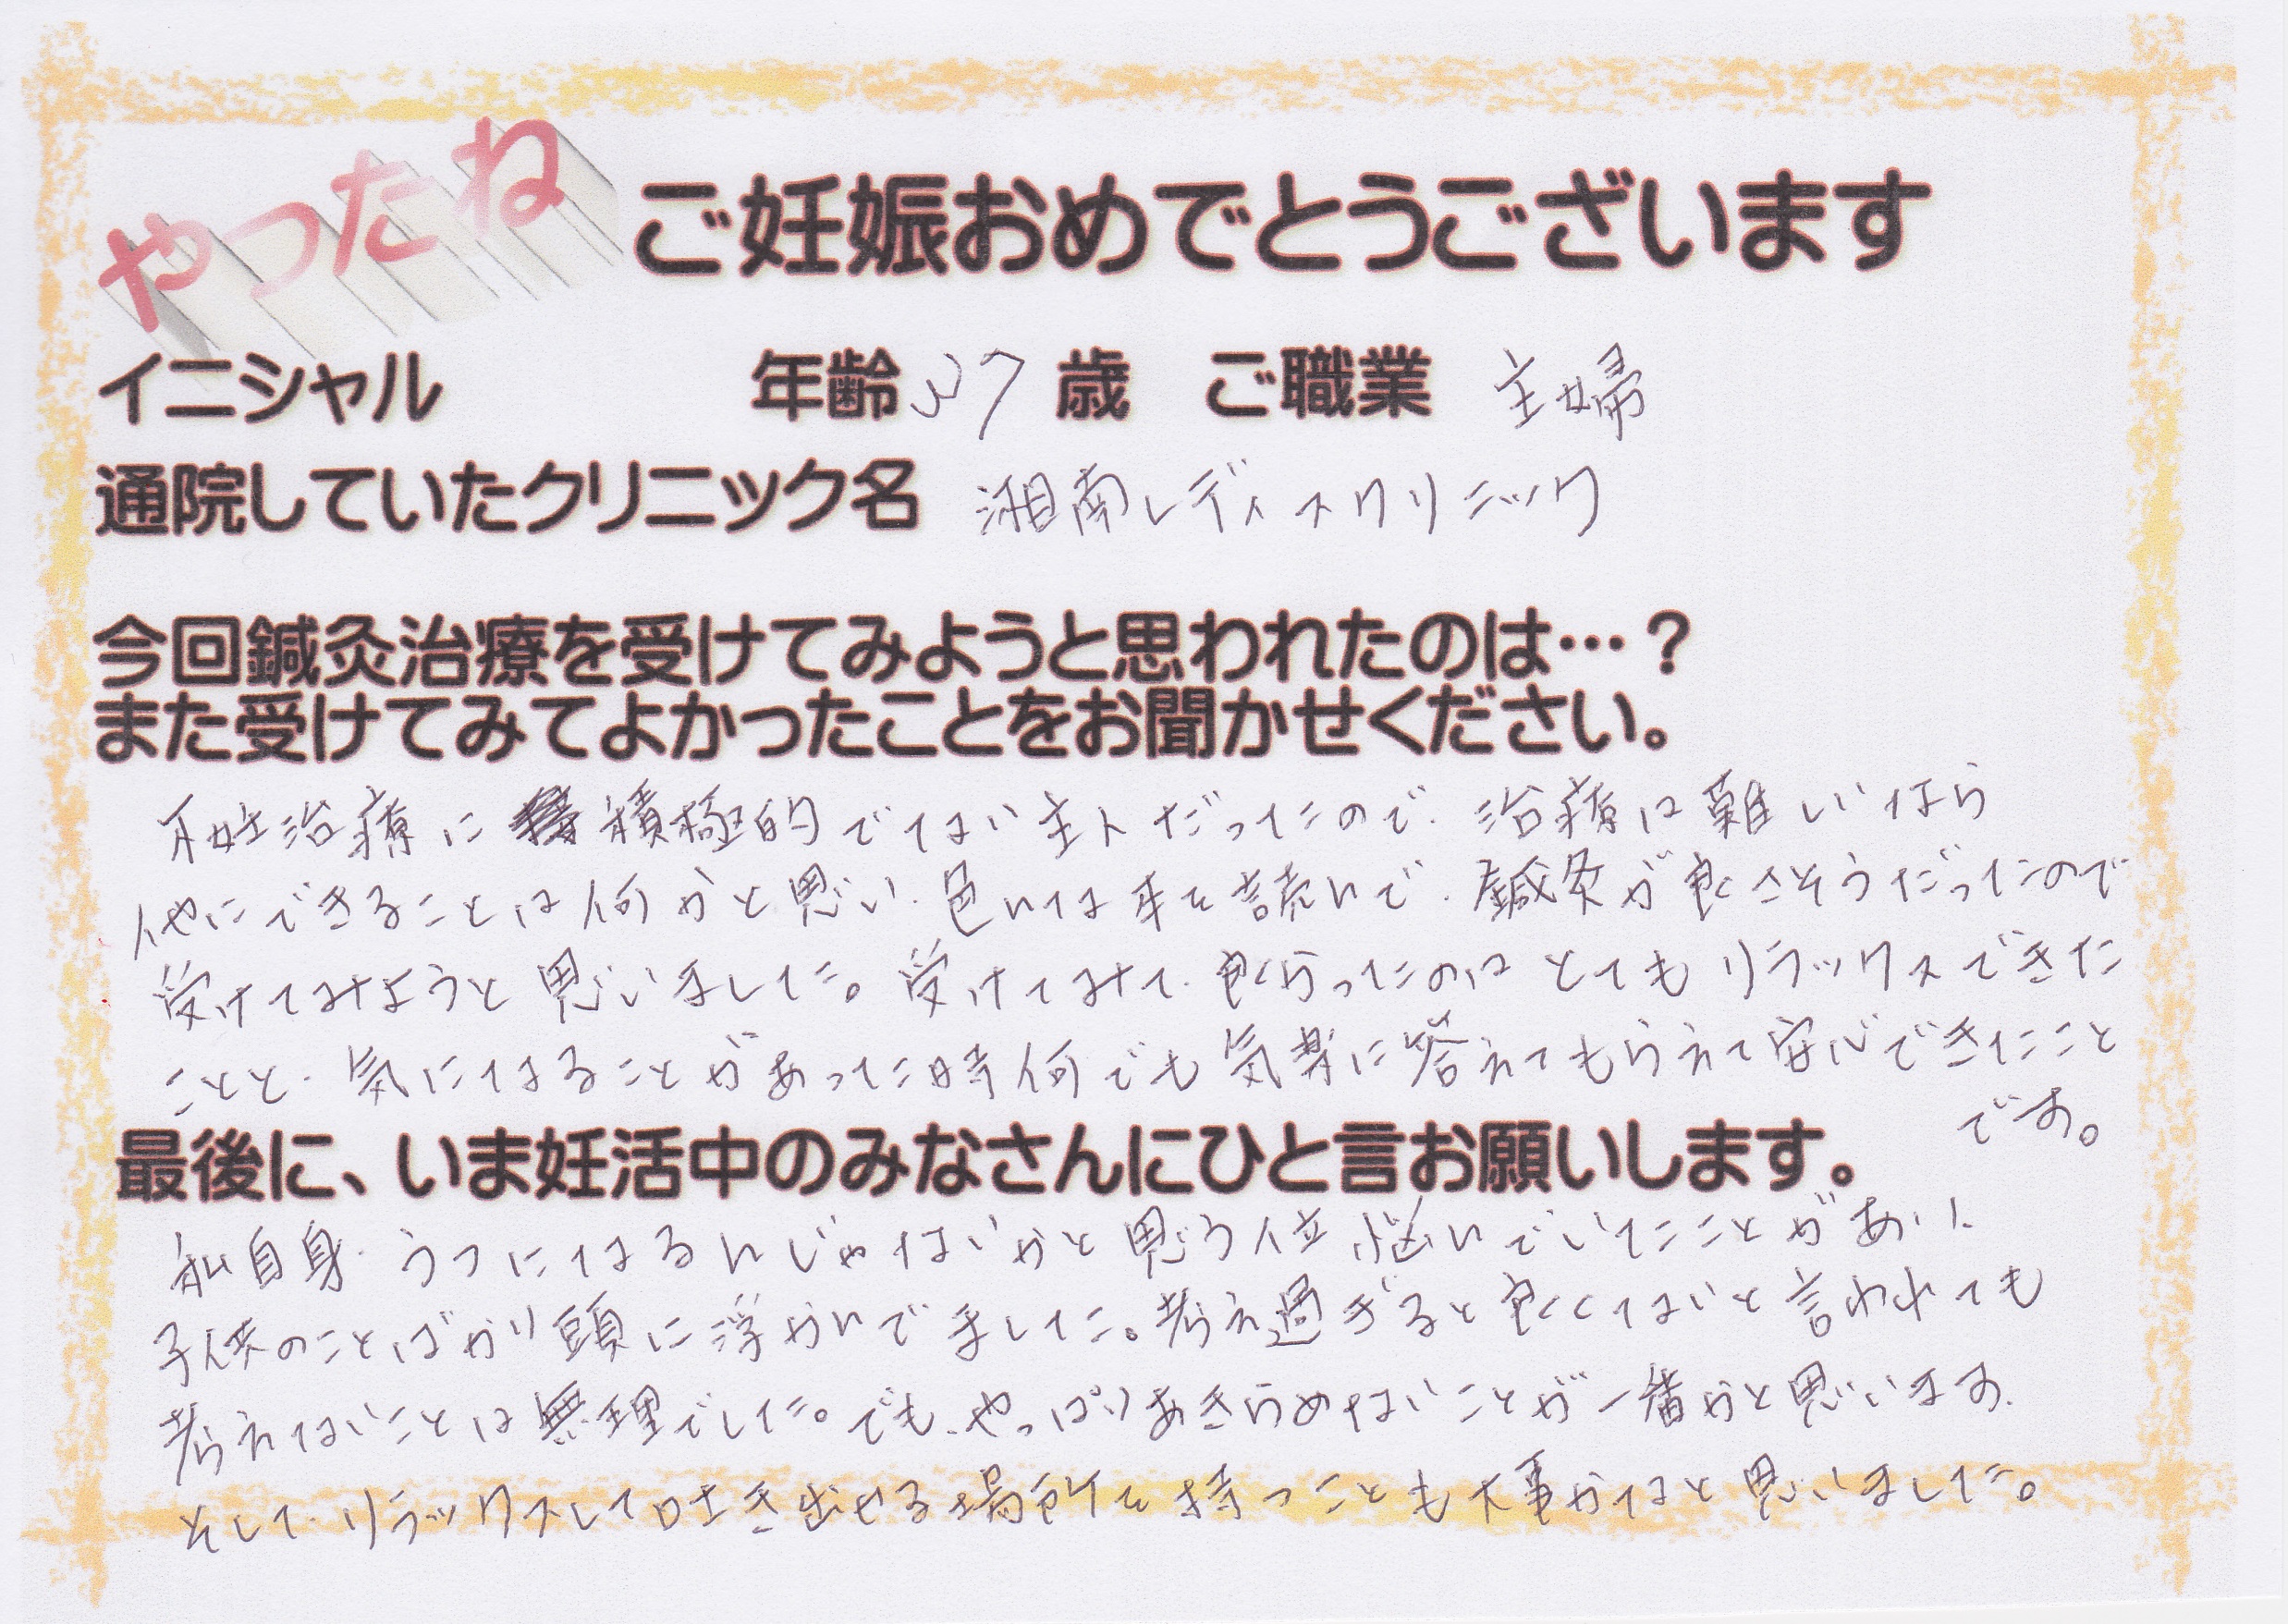 やったね ご妊娠おめでとうございます
イニシャル 年齢 37 歳 ご職業 主婦
通院していたクリニック名 湘南レディスクリニック
今回鍼灸治療を受けてみようと思われたのは…？
また受けてみてよかったことをお聞かせください。
不妊治療に積極的でない主人だったので、治療は難しいなら
他にできることは何かと思い、色んな本を読んで、鍼灸が良さそうだったので
受けてみようと思いました。受けてみて、良かったのはとてもリラックスできた
ことと、気になることがあった時何でも気楽に答えてもらえて安心できたこと
です。
最後に、いま妊活中のみなさんにひと言お願いします。
私自身、うつになるんじゃないかと思う位悩んでいたことがあり、
子供のことばかり頭に浮かんでました。考え過ぎると良くないと言われても
考えないことは無理でした。でも、やっぱりあきらめないことが一番かと思います。
そして、リラックスして吐き出せる場所を持つことも大事かなと思いました。